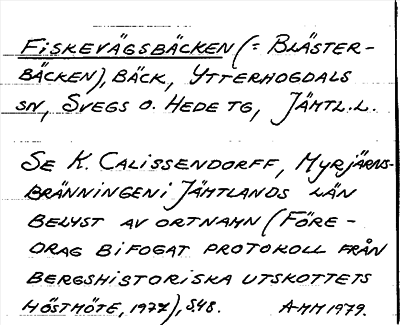 FISKEVÄGSBÄCKEN (= BLÄSTER-
BÄCKEN), BÄCK, YTTERHOGDALS
SN, SVEGS O. HEDE TG, JÄMTL.L.
SE K. CALISSENDORFF, MYRJÄRNS-
BRÄNNINGEN I JÄMTLANDS LÄN
BELYST AV ORTNAMN (FÖRE-
DRAG BIFOGAT PROTOKOLL FRÅN
BERGSHISTORISKA UTSKOTTETS
HÖSTMÖTE, 1977), S48. A-MM 1979.